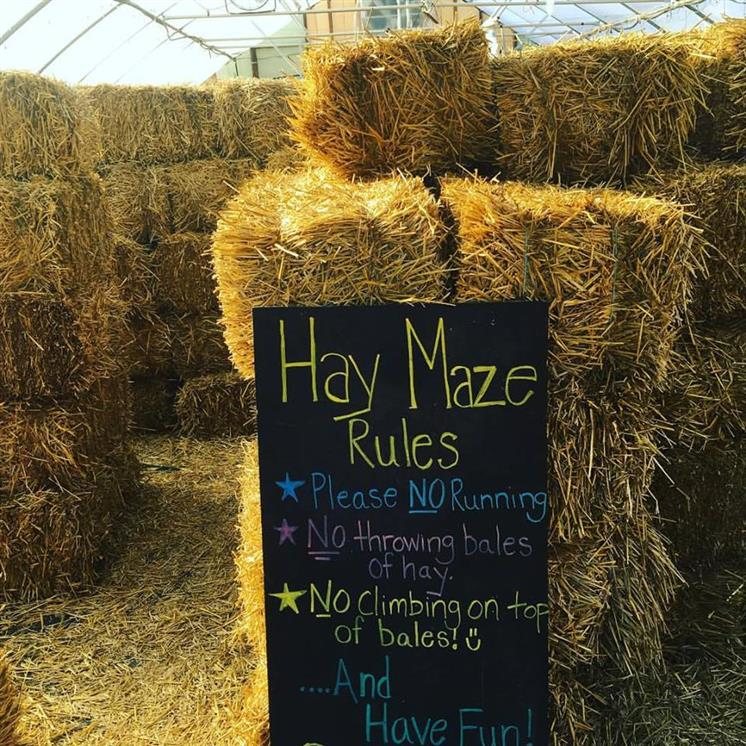 Hay Maze
Rules
Please NO Running
NO throwing bales
of hay.
NO Climbing on top
of bales!
....And
Have Fun!